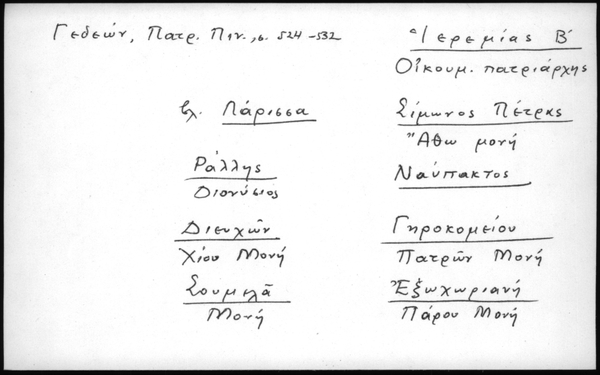 Γεδεών, Πατρ. Πιν., σ. 524-532
Ἱερεμίας Β΄
Οἰκουμ. πατριάρχης
βλ. Λάρισσα
Σίμωνος Πέτρας
Ἄθω μονή
Ράλλης
Διονύσιος
Ναύπακτος
Διευχῶν
Χίου Μονή
Γηροκομείου
Πατρῶν Μονή
Σουμελᾶ
Μονή
Ἐξωχωριανή
Πάρου Μονή